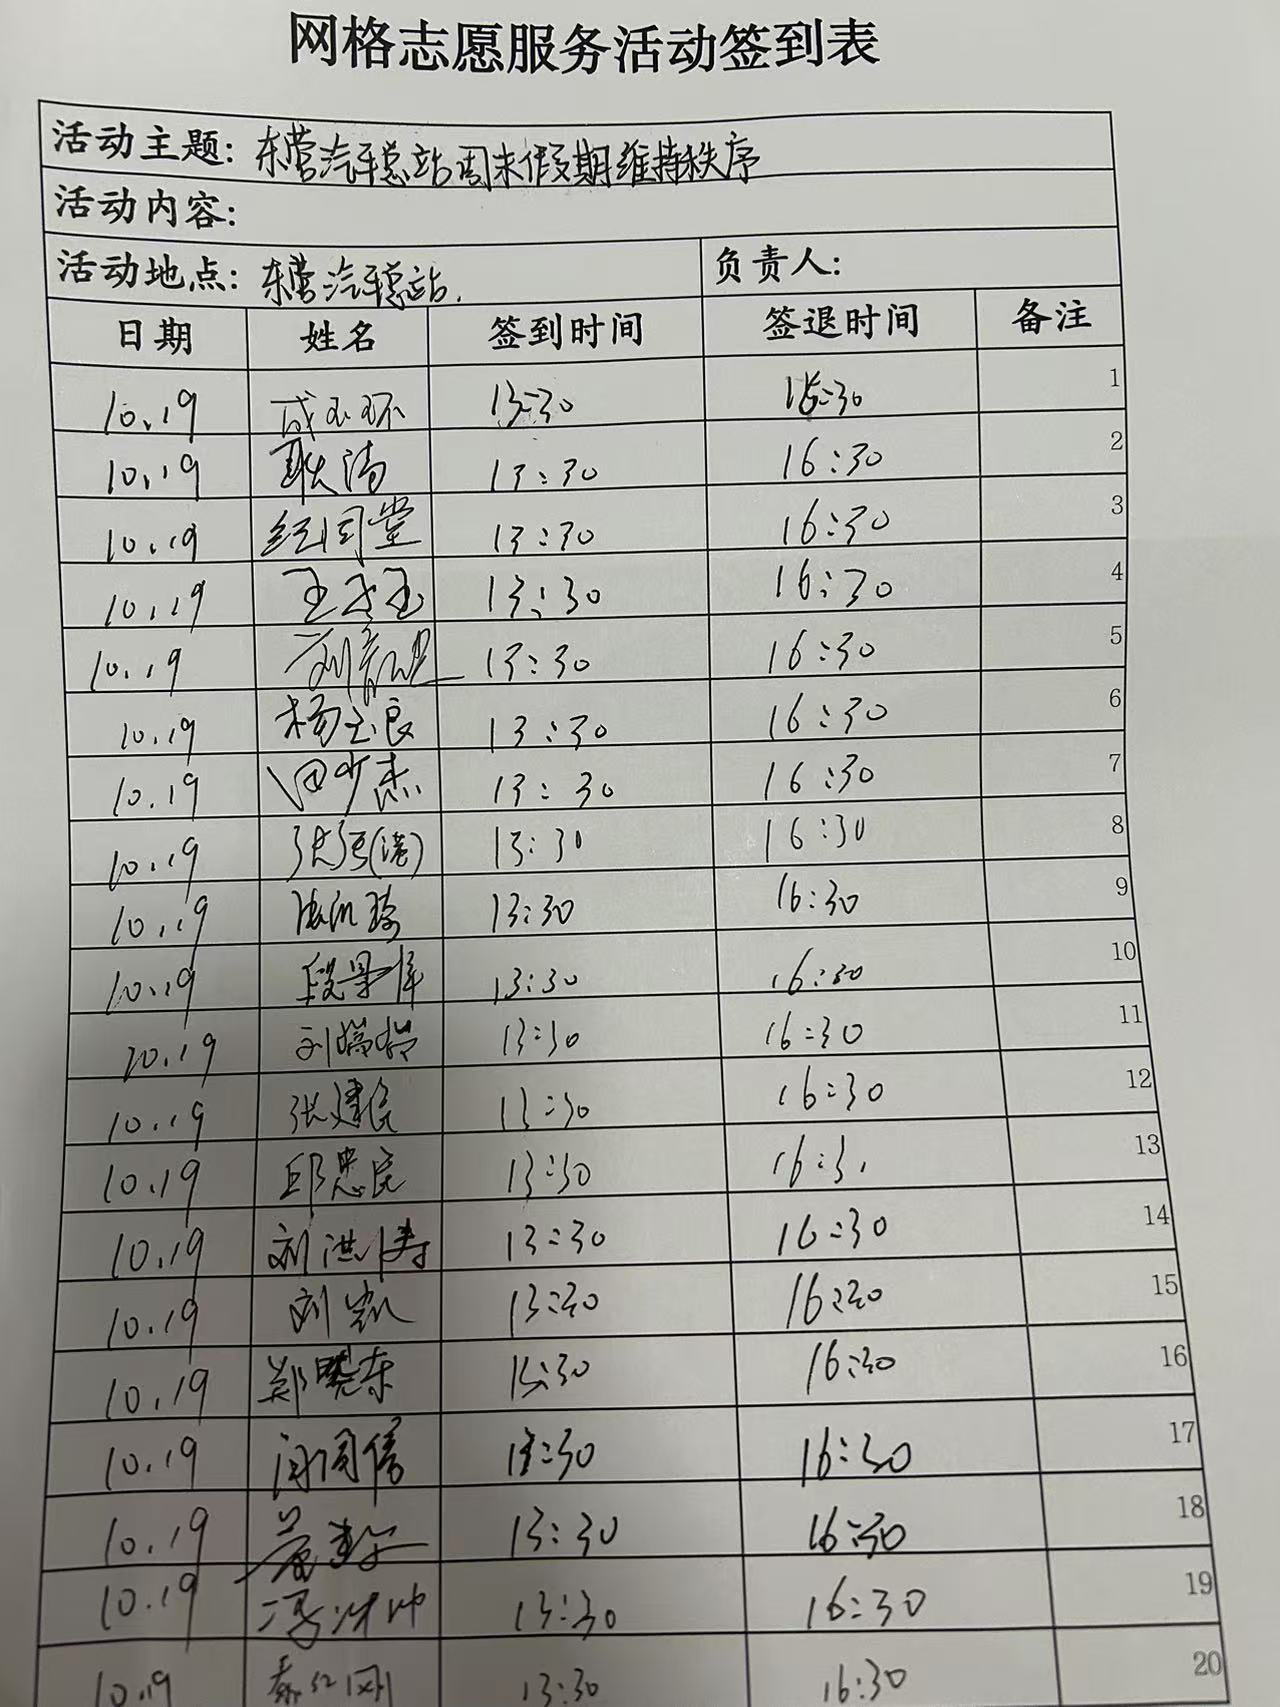 网格志愿服务活动签到表
活动主题: 东营汽车总站周末假期维持秩序
活动内容:
活动地点: 东营汽车总站.
负责人:
日期 姓名 签到时间 签退时间 备注
10.19 成玉环 13:30 16:30 1
10.19 耿涛 13:30 16:30 2
10.19 纪同堂 13:30 16:30 3
10.19 王玉玉 13:30 16:30 4
10.19 刘 13:30 16:30 5
10.19 杨玉良 13:30 16:30 6
10.19 田少杰 13:30 16:30 7
10.19 张强(港) 13:30 16:30 8
10.19 13:30 16:30 9
10.19 段景库 13:30 16:30 10
20.19 刘瑞瑞 13:30 16:30 11
10.19 张建民 13:30 16:30 12
10.19 邱忠民 13:30 16:3 13
10.19 刘洪涛 13:30 16:30 14
10.19 刘凯 13:30 16:30 15
10.19 郑晓东 13:30 16:30 16
10.19 闫同信 13:30 16:30 17
10.19 13:30 16:30 18
10.19 冯 13:30 16:30 19
10.19 秦红刚 13:30 16:30 20